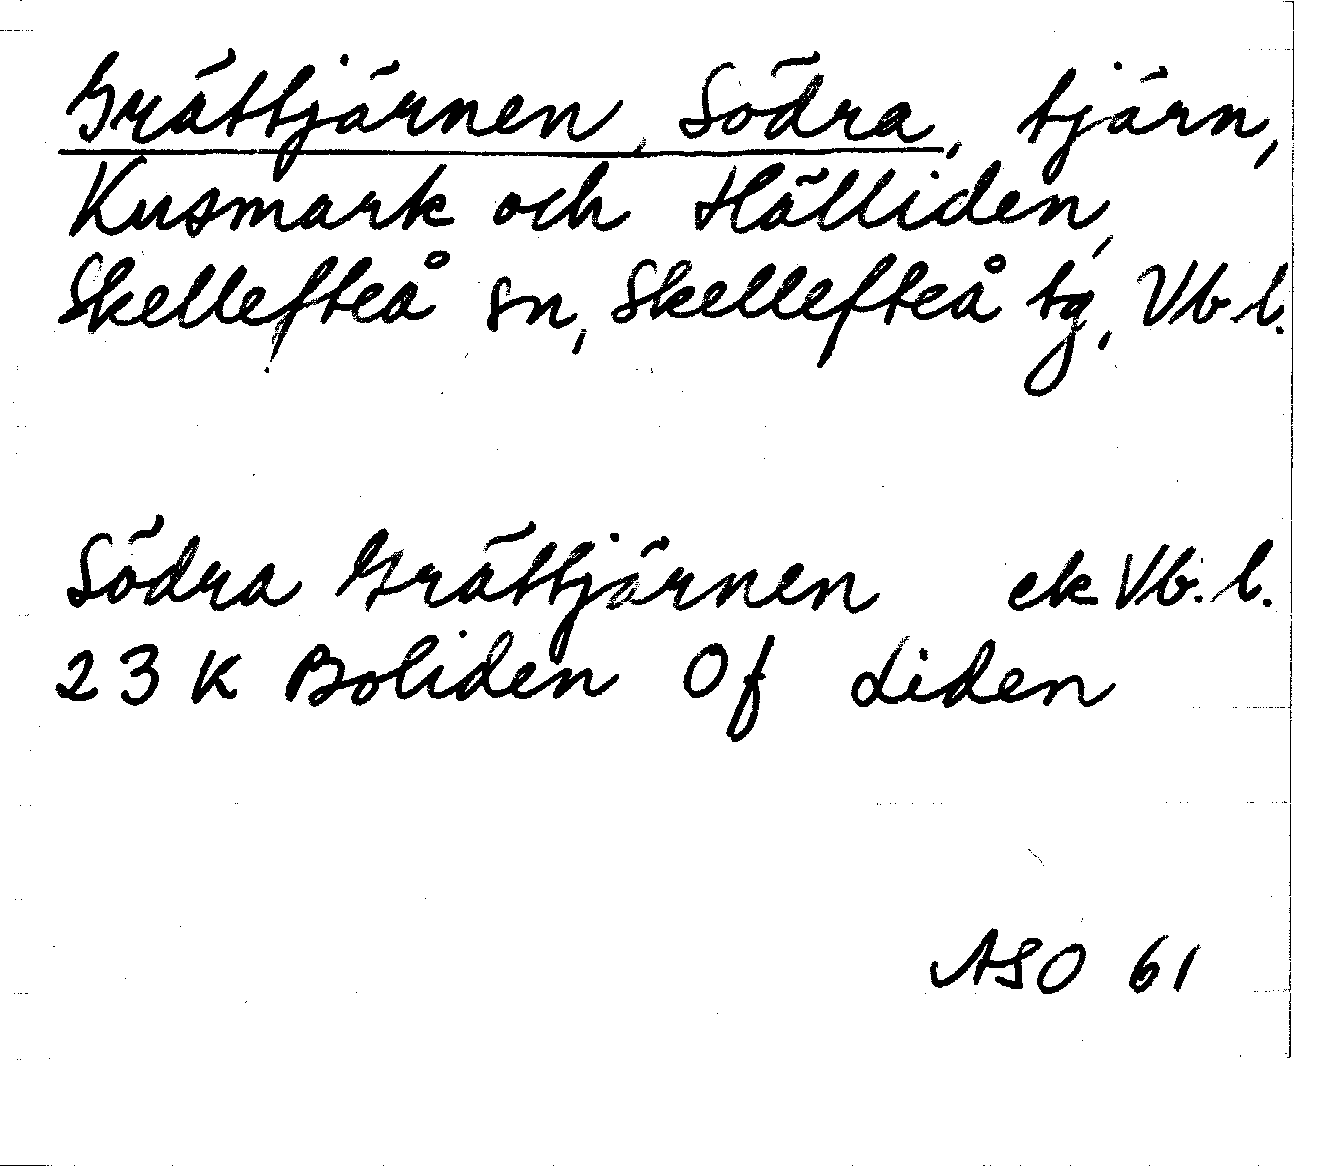 Grättjärnen, Södra, tjärn,
Kusmark och Hälliden,
Skellefteå sn, Skellefteå tg, Vb l.
Södra Grättjärnen ek Vb. l.
23 K Boliden 0f Liden
ASO 61